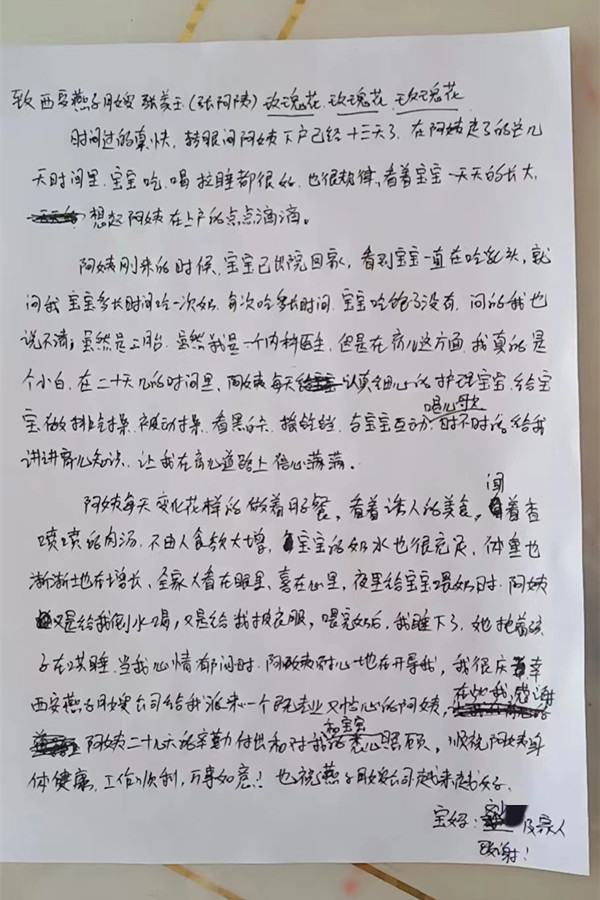 致西安燕子月嫂张美玉(张阿姨)玫瑰花、玫瑰花、玫瑰花
时间过的真快,转眼间阿姨下户已经十三天了,在阿姨走了的这几
天时间里,宝宝吃、喝拉睡都很好,也很规律,看着宝宝一天天的长大,
想起阿姨在上户的点点滴滴。
阿姨刚来的时候,宝宝已出院回家,看到宝宝一直在吃乳头,就
问我宝宝多长时间吃一次奶,每次吃多长时间,宝宝吃饱了没有,问的我也
说不清,虽然是二胎,虽然我是一个内科医生,但是在育儿这方面,我真的是
个小白,在二十天几的时间里,阿姨每天认真细心的护理宝宝,给宝
宝做排气操、被动操、看黑白卡、摇铃铛、与宝宝互动唱儿歌,时不时的给我
讲讲育儿知识,让我在育儿道路上信心满满。
阿姨每天变化花样的做着月子餐,看着诱人的美食,闻着香
喷喷的肉汤,不由人食欲大增,宝宝的奶水也很充足,体重也
渐渐地在增长,全家人看在眼里、喜在心里,夜里给宝宝喂奶时,阿姨
又是给我倒水喝,又是给我披衣服,喂完奶后,我睡下了,她抱着孩
子在哄睡,当我心情郁闷时,阿姨耐心地在开导我,我很庆幸
西安燕子月嫂公司给我派来一个既专业又贴心的阿姨,在此我感谢
阿姨二十几天的辛勤付出和对我和宝宝的悉心照顾,顺祝阿姨身
体健康,工作顺利,万事如意!也祝燕子月嫂公司越来越好。
宝妈:刘 及家人
致谢!